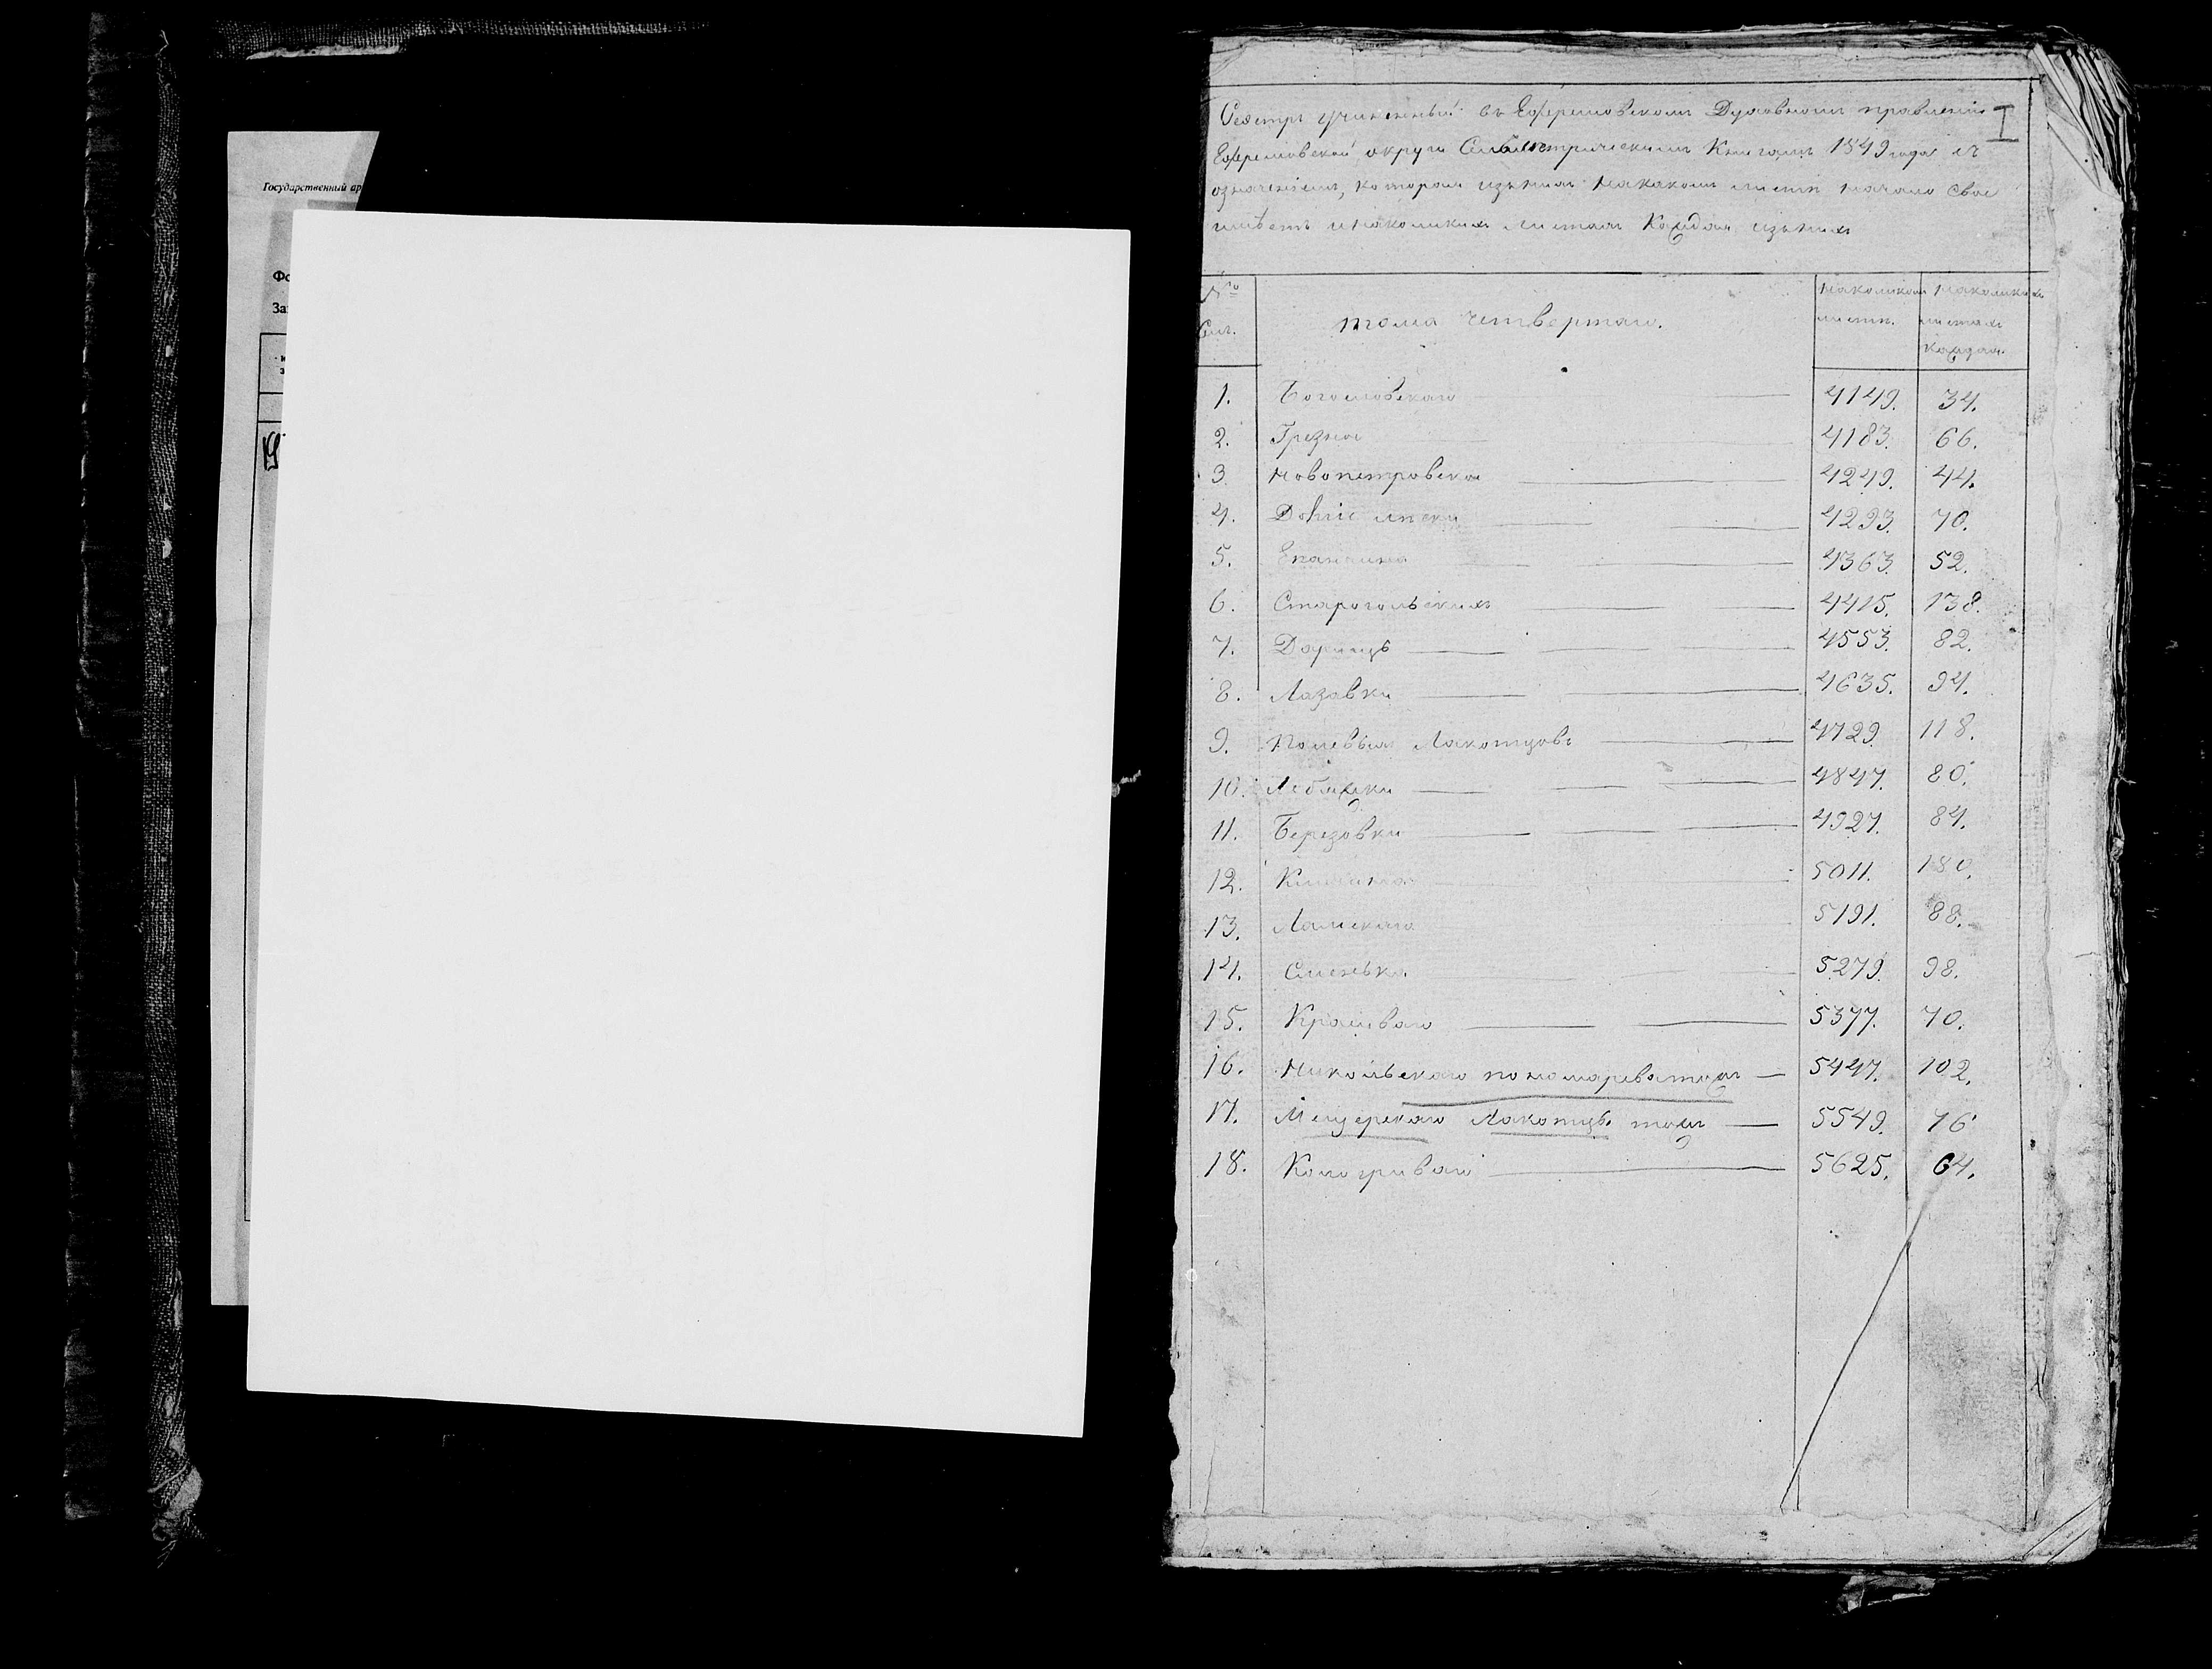 Государственный ар
Фо
За
I
Реестръ учиненный въ Ефремовскомъ Духовномъ правленіи
Ефремовской округи Симметрическимъ Книгамъ 1849 года съ
означеніемъ, которая изъ нихъ на какомъ листѣ начало свое
имѣетъ и наколикихъ листахъ Каждая изъ нихъ
№
тома четвертаго.
на коликом листѣ.
на коликихъ листахъ каждая.
1. Богословскаго 4149. 34.
2. Грезное 4183. 66.
3. Новопетровское 4249. 44.
4. 4293. 70.
5. Епанчина 4363. 52.
6. Старогольскихъ 4415. 138.
7. Дорищъ 4553. 82.
8. Лазавки 4635. 94.
9. Полевыхъ Лакотцовъ 4729. 118.
10. Лебяжки 4847. 80.
11. Березовки 4927. 84.
12. 5011. 180.
13. Ламскаго 5191. 88.
14. 5279. 98.
15. Красиваго 5377. 70.
16. Никольскаго пономарево тожъ 5447. 102.
17. Мещерскаго Лакотцы тожъ 5549. 76
18. Кологриваго 5625. 64.